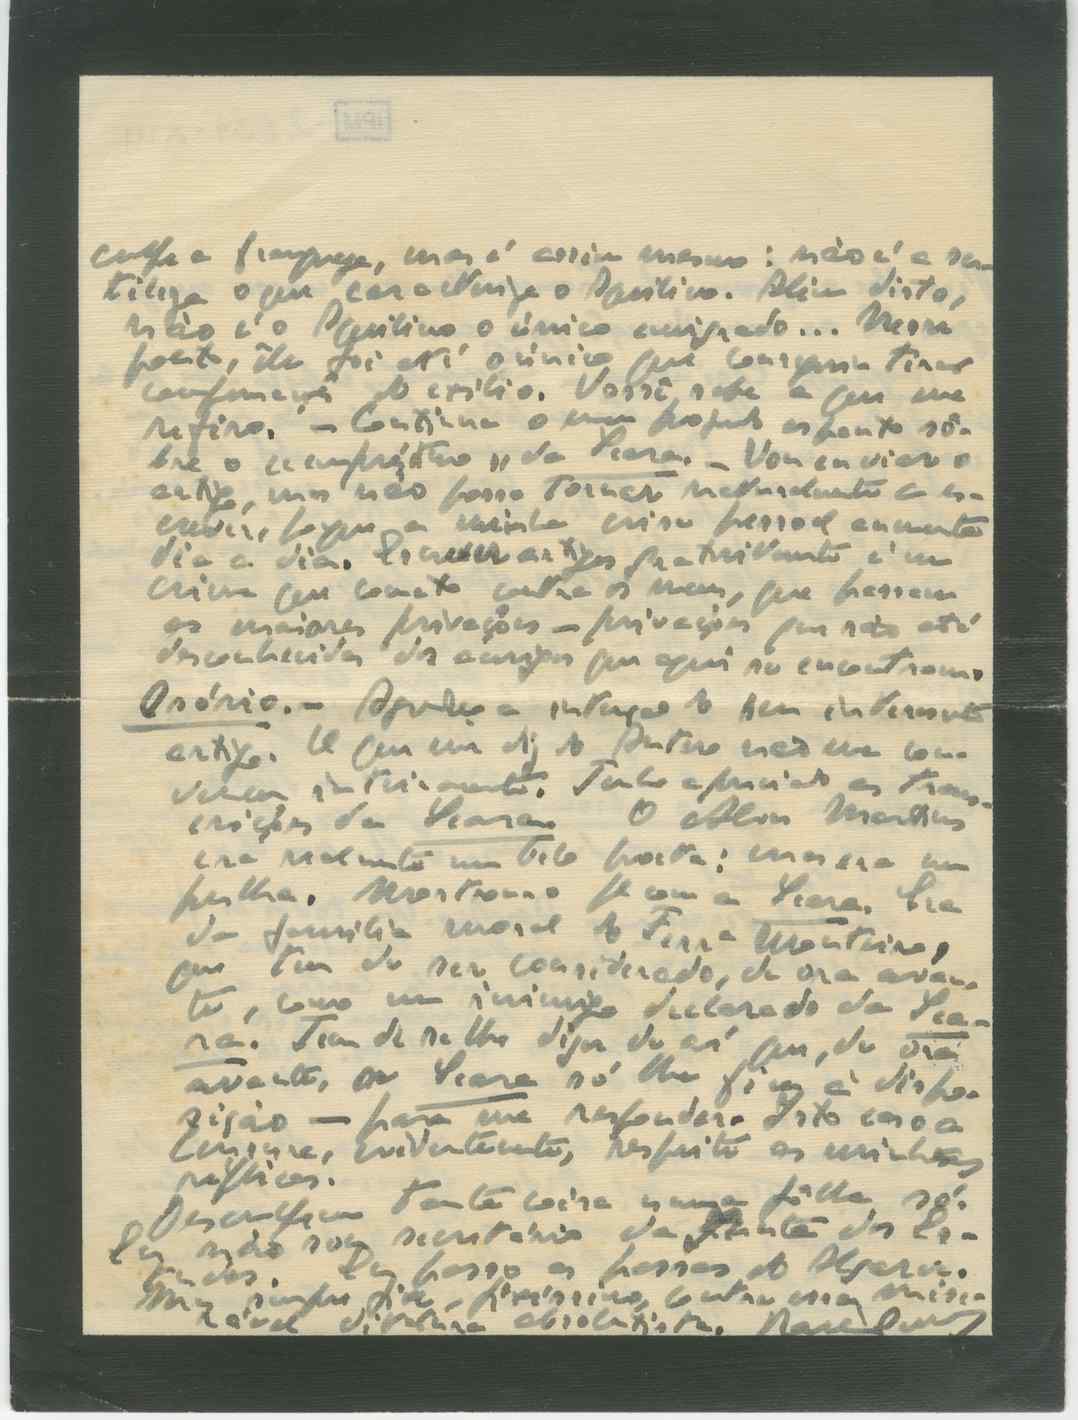 culpe a franqueza, mas é assim mesmo: não é a gen-
tileza o que caracteriza o Aquilino. Além disto,
não é o Aquilino o único emigrado... Nesse
ponto, êle foi até o único que conseguiu tirar
do exílio. Você sabe a que me
refiro. – Continua o meu projecto àsôbre
bre o „ da Seara. – Vou enviar o
artigo, mas não posso tornar naturalmente a es-
crever, porque a minha crise pessoal aumenta
dia a dia. Escrever artigos gratuitamente é um
crime que cometo contra os meus, que passam
as maiores privações – privações que são até
desconhecidas dos amigos que aqui se encontram.
Osório. – Agradeço a intenção do seu interessante
artigo. O que me diz do Antero não me con-
vence inteiramente. Tenho apreciado as trans-
crições da Seara. O Alves Martins
era realmente um belo poeta: mas era um
pulha. Mostrou-o com a Seara. Era
da família moral do Ferra Monteiro,
que tem de ser considerado, de ora avan-
te, como um inimigo declarado da Sea-
ra. Tem de se lhe dizer daí que, de ora
avante, a Seara só lhe fica à dispo-
sição – para me responder. Isto caso a
Censura, evidentemente, respeite as minhas
réplicas.
Desculpem tanta coisa numa fôlha só.
Eu não sou secretário da Junta dos Es-
tudos. Eu passo as passas do Algarve.
Mas sempre fixe, fixíssimo, contra essa misé-
rável ditadura absolutista.